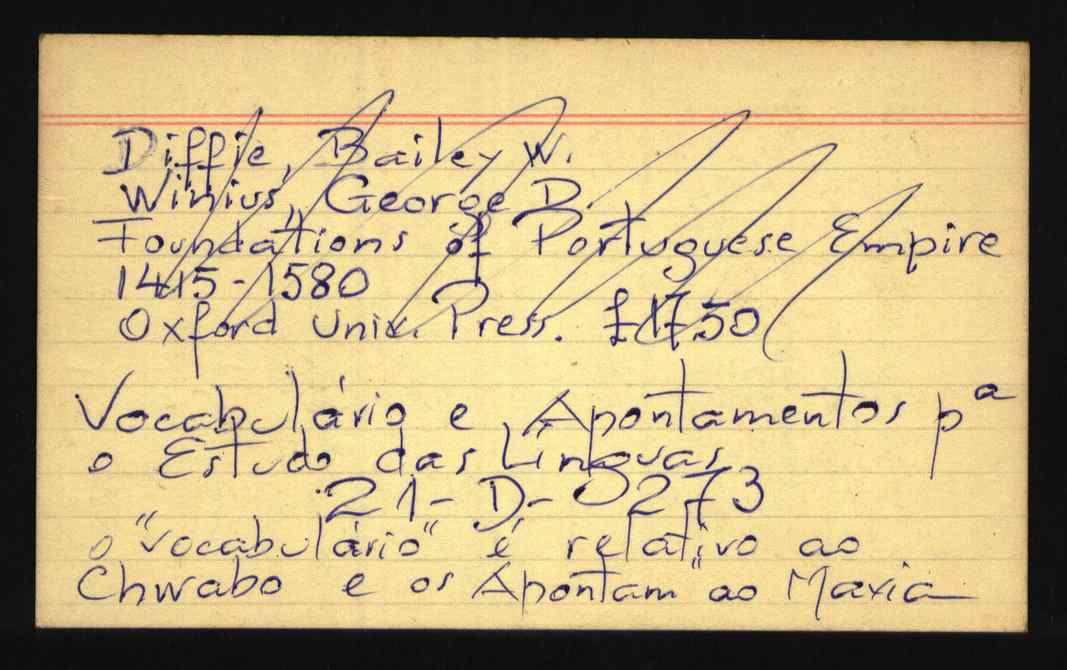 Diffie, Bailey W.
Winius, George D.
Foundations of Portuguese Empire
1415-1580
Oxford Univ. Press. £17.50
Vocabulário e Apontamentos pª
o Estudo das Línguas
21-D-0273
o "vocabulário" é relativo ao
Chwabo e os Apontam" ao Maxia